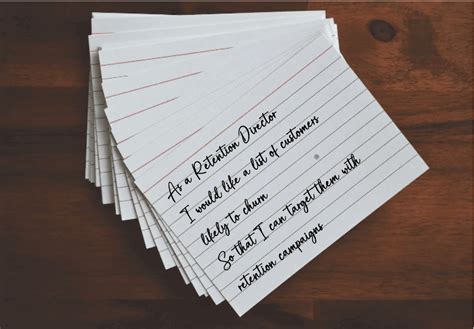 As a Retention Director
I would like a list of customers
likely to churn
So that I can target them with
retention campaigns